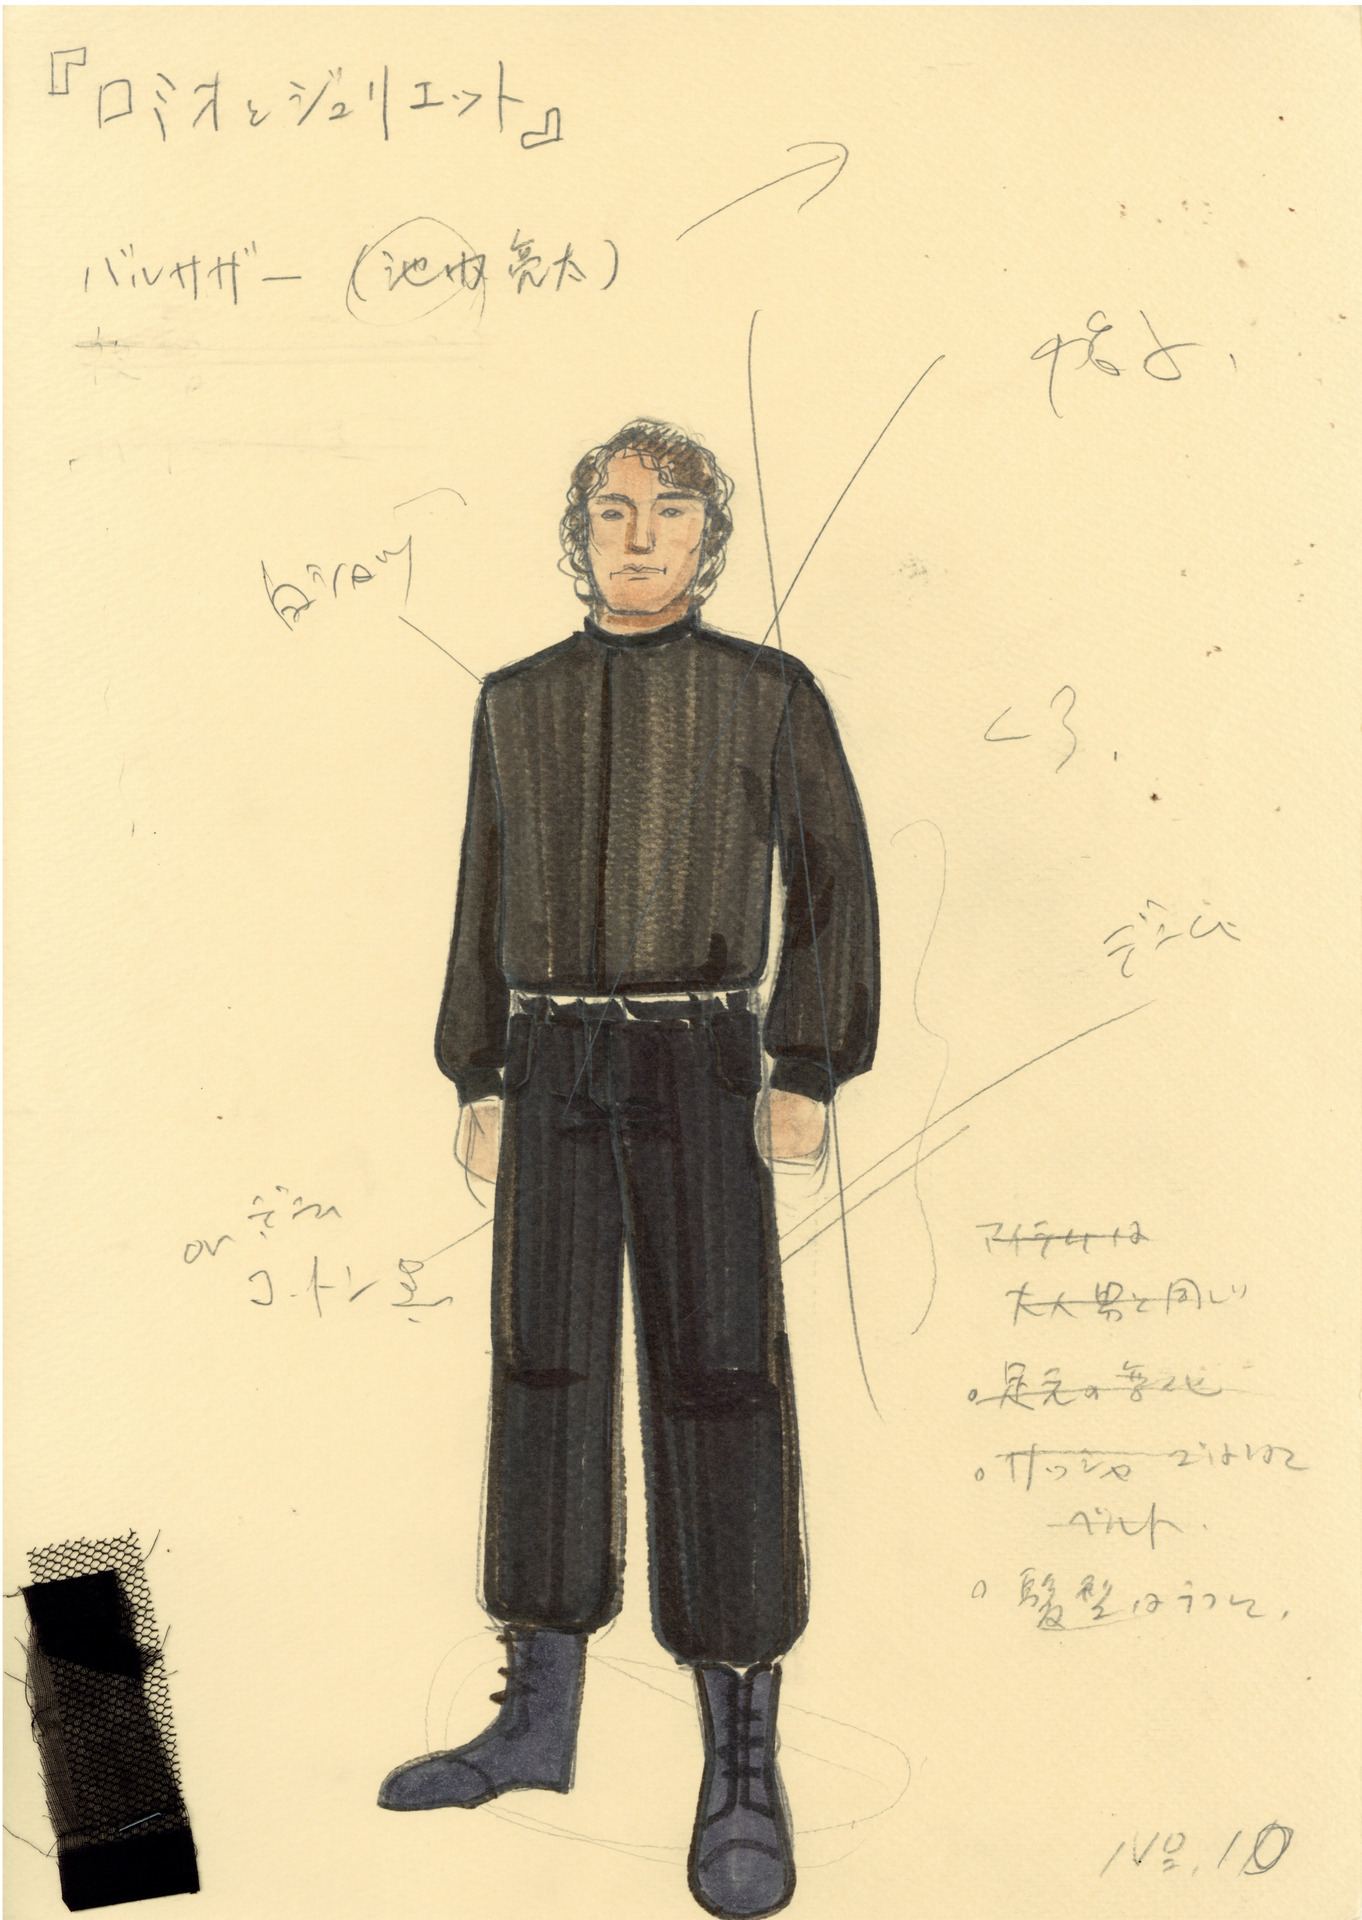 『ロミオとジュリエット』
バルサザー (池内亮太)
白シャツ
くろ.
デニム
or デニム
コットン 黒
アイテムは
大人男と同じ
足元の
サッシャ ではなくて
ベルト.
髪型は
No.10